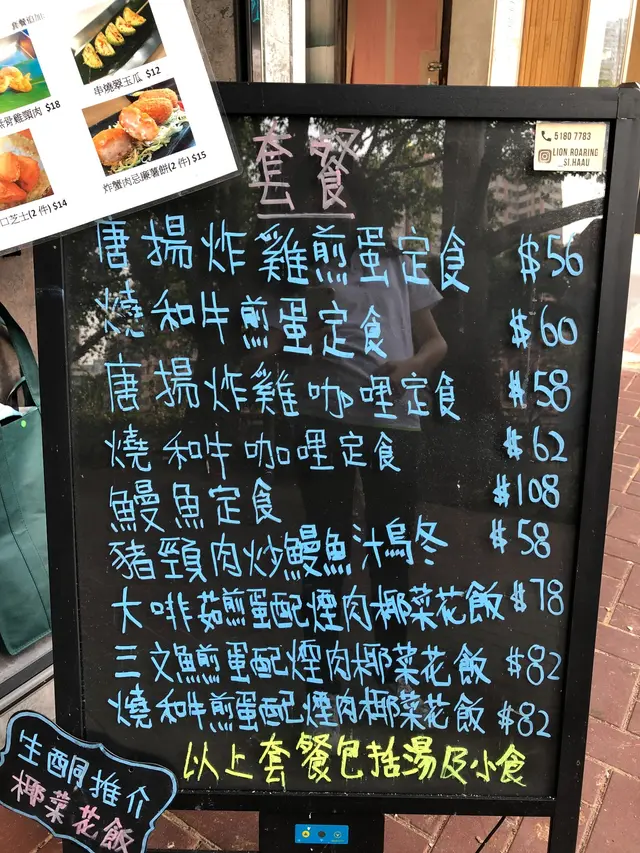 套餐追加
串燒翠玉瓜 $12
骨雞頸肉 $18
炸蟹肉忌廉薯餅(2件) $15
芝士(2件) $14
5180 7783
LION ROARING
_SI.HAAU
套餐
唐揚炸雞煎蛋定食 $56
燒和牛煎蛋定食 $60
唐揚炸雞咖哩定食 $58
燒和牛咖哩定食 $62
鰻魚定食 $108
豬頸肉炒鰻魚汁烏冬 $58
大啡菇煎蛋配煙肉椰菜花飯 $78
三文魚煎蛋配煙肉椰菜花飯 $82
燒和牛煎蛋配煙肉椰菜花飯 $82
以上套餐包括湯及小食
生酮推介
椰菜花飯